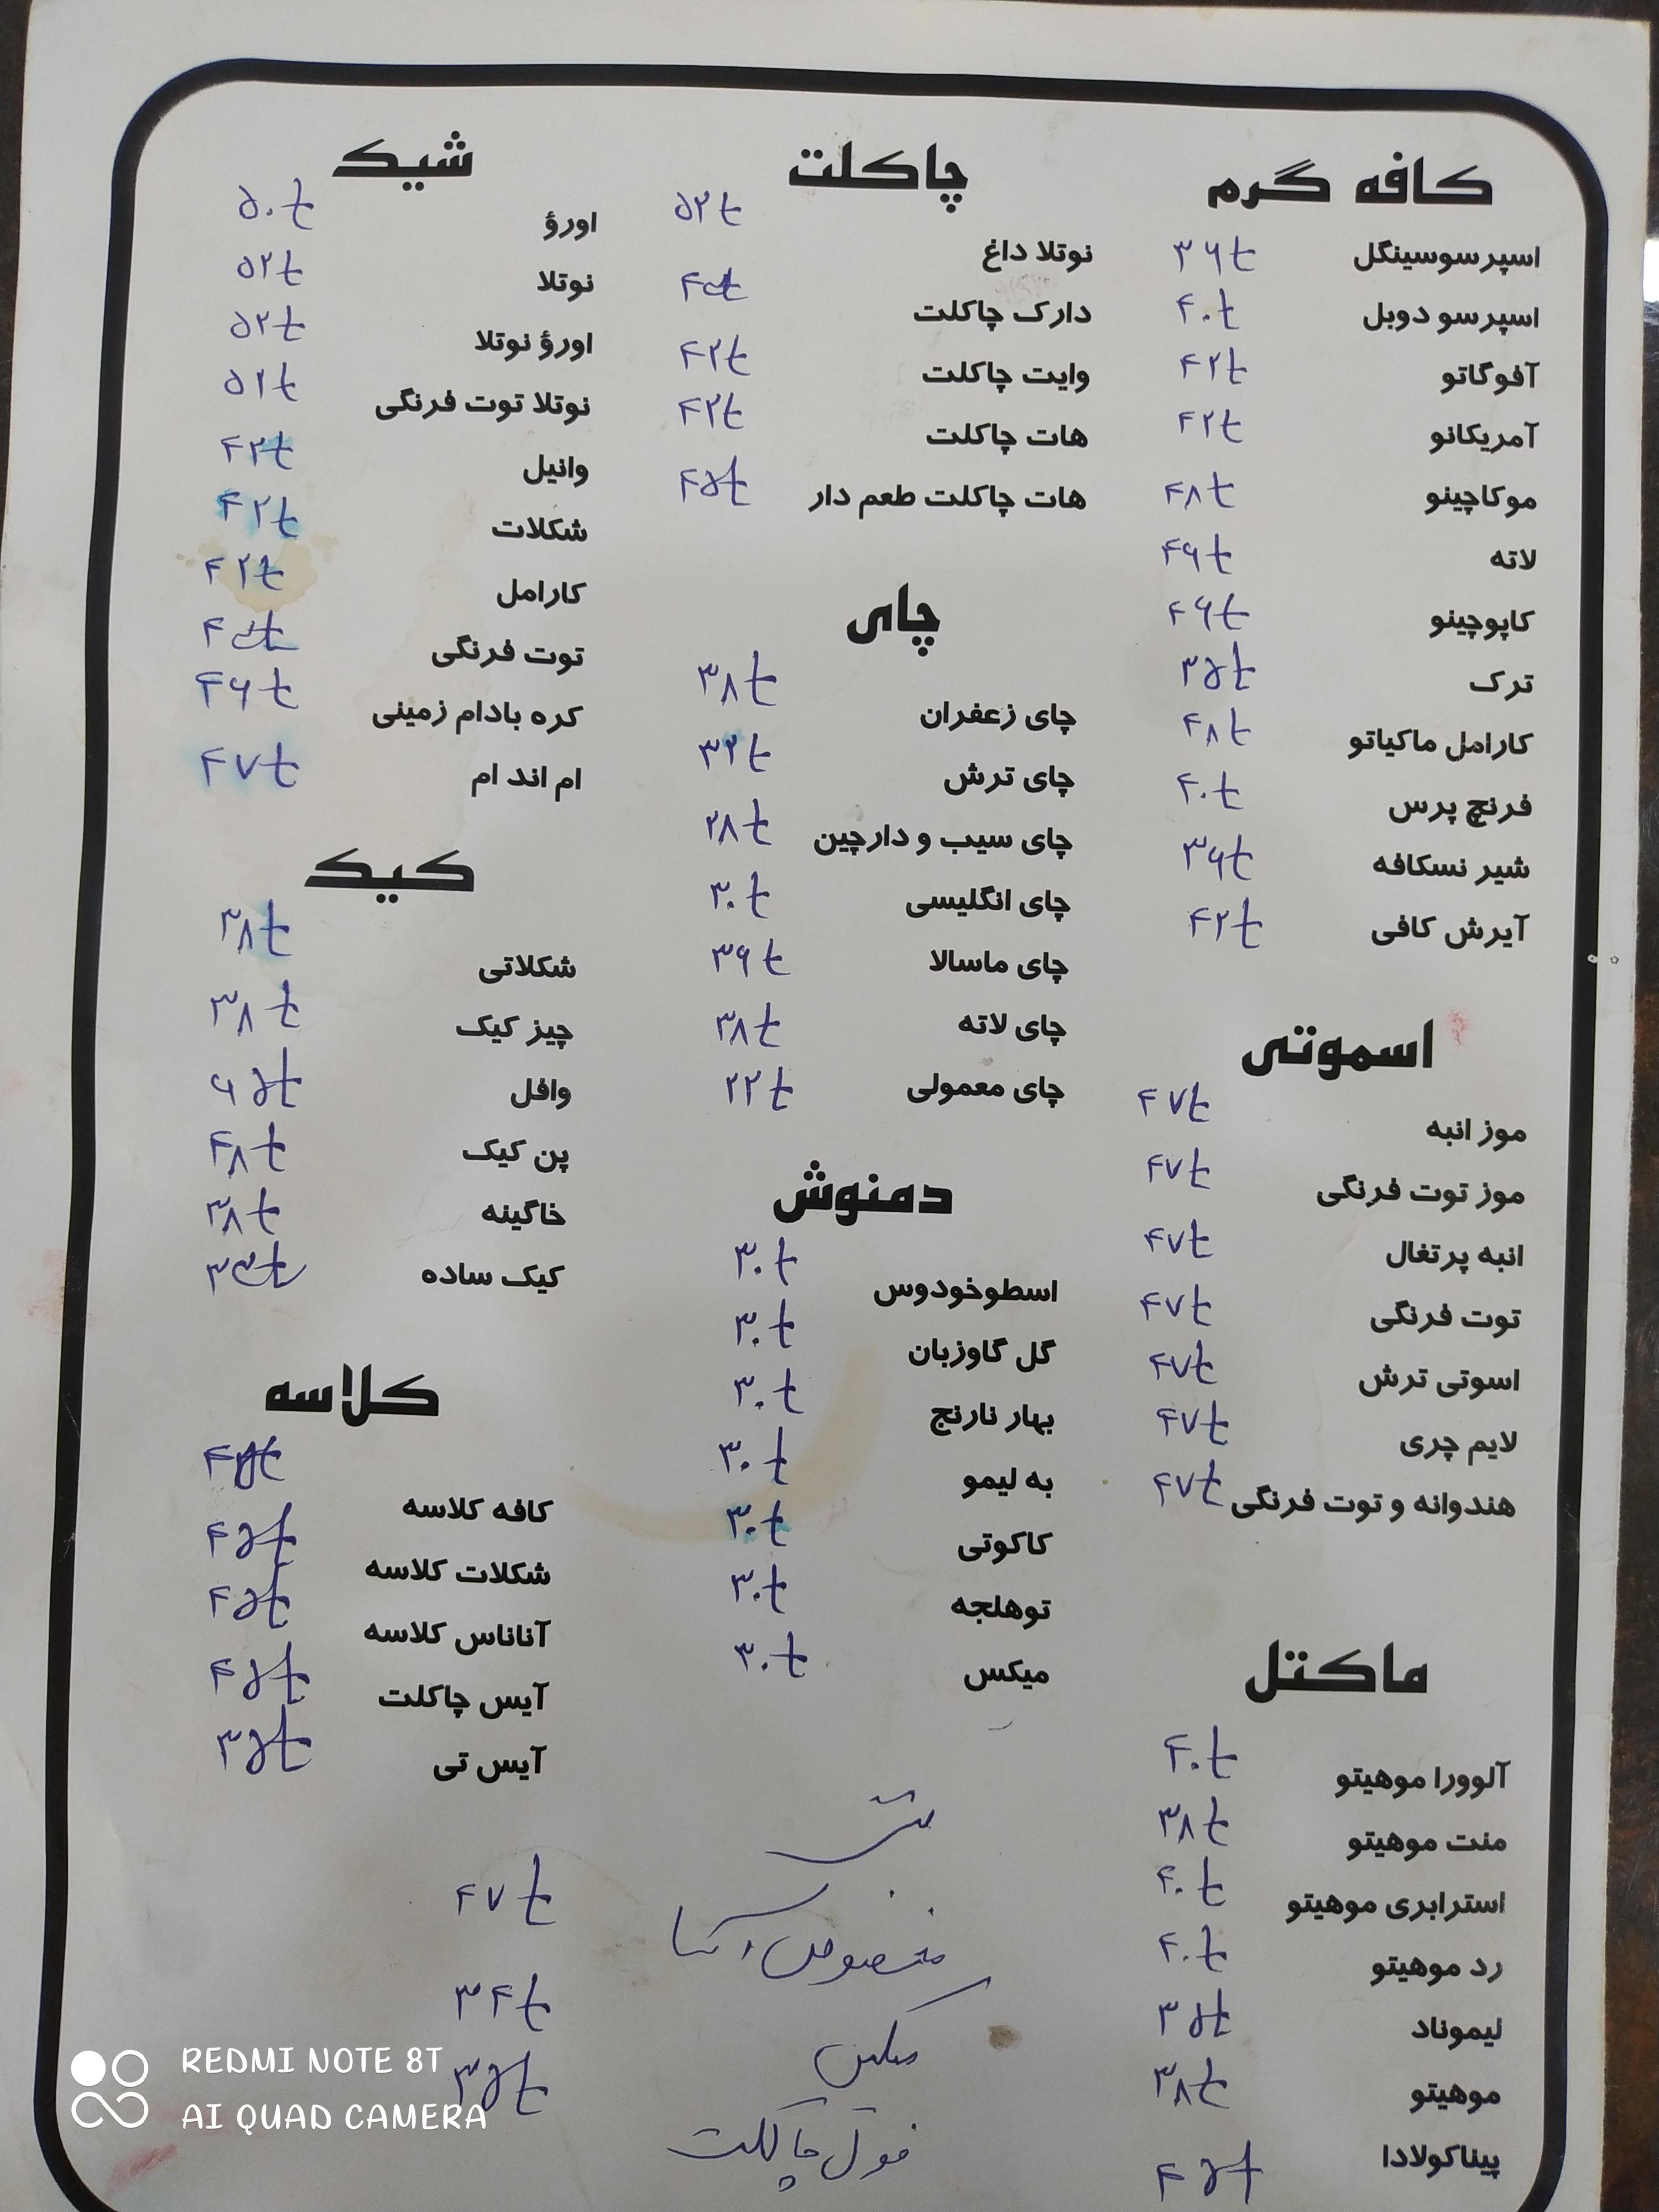 کافه گرم
اسپرسوسینگل ۳۶t
اسپرسو دوبل ۴۰t
آفوگاتو ۴۲t
آمریکانو ۴۲t
موکاچینو ۴۸t
لاته ۴۶t
کاپوچینو ۴۶t
ترک ۳۵t
کارامل ماکیاتو ۴۸t
فرنچ پرس ۴۰t
شیر نسکافه ۳۶t
آیرش کافی ۴۲t
اسموتی
موز انبه ۴۷t
موز توت فرنگی ۴۷t
انبه پرتغال ۴۷t
توت فرنگی ۴۷t
اسوتی ترش ۴۷t
لایم چری ۴۷t
هندوانه و توت فرنگی ۴۷t
ماکتل
آلوورا موهیتو ۴۰t
منت موهیتو ۳۸t
استرابری موهیتو ۴۰t
رد موهیتو ۴۰t
لیموناد ۳۵t
موهیتو ۳۸t
پیناکولادا ۴۵t
چاکلت
نوتلا داغ ۵۲t
دارک چاکلت ۴۵t
وایت چاکلت ۴۲t
هات چاکلت ۴۲t
هات چاکلت طعم دار ۴۵t
چای
چای زعفران ۳۸t
چای ترش ۳۲t
چای سیب و دارچین ۲۸t
چای انگلیسی ۳۰t
چای ماسالا ۳۶t
چای لاته ۳۸t
چای معمولی ۲۲t
دمنوش
اسطوخودوس ۳۰t
گل گاوزبان ۳۰t
بهار نارنج ۳۰t
به لیمو ۳۰t
کاکوتی ۳۰t
توهلجه ۳۰t
میکس ۳۰t
شیک
اورؤ ۵۰t
نوتلا ۵۲t
اورؤ نوتلا ۵۲t
نوتلا توت فرنگی ۵۲t
وانیل ۴۲t
شکلات ۴۲t
کارامل ۴۲t
توت فرنگی ۴۵t
کره بادام زمینی ۴۶t
ام اند ام ۴۷t
کیک
شکلاتی ۳۸t
چیز کیک ۳۸t
وافل ۶۵t
پن کیک ۴۸t
خاگینه ۳۸t
کیک ساده ۳۵t
کلاسه
کافه کلاسه ۴۵t
شکلات کلاسه ۴۵t
آناناس کلاسه ۴۵t
آیس چاکلت ۴۵t
آیس تی ۳۵t
مخصوص ۴۷t
میکس ۳۴t
فول چاکلت ۳۵t
REDMI NOTE 8T
AI QUAD CAMERA